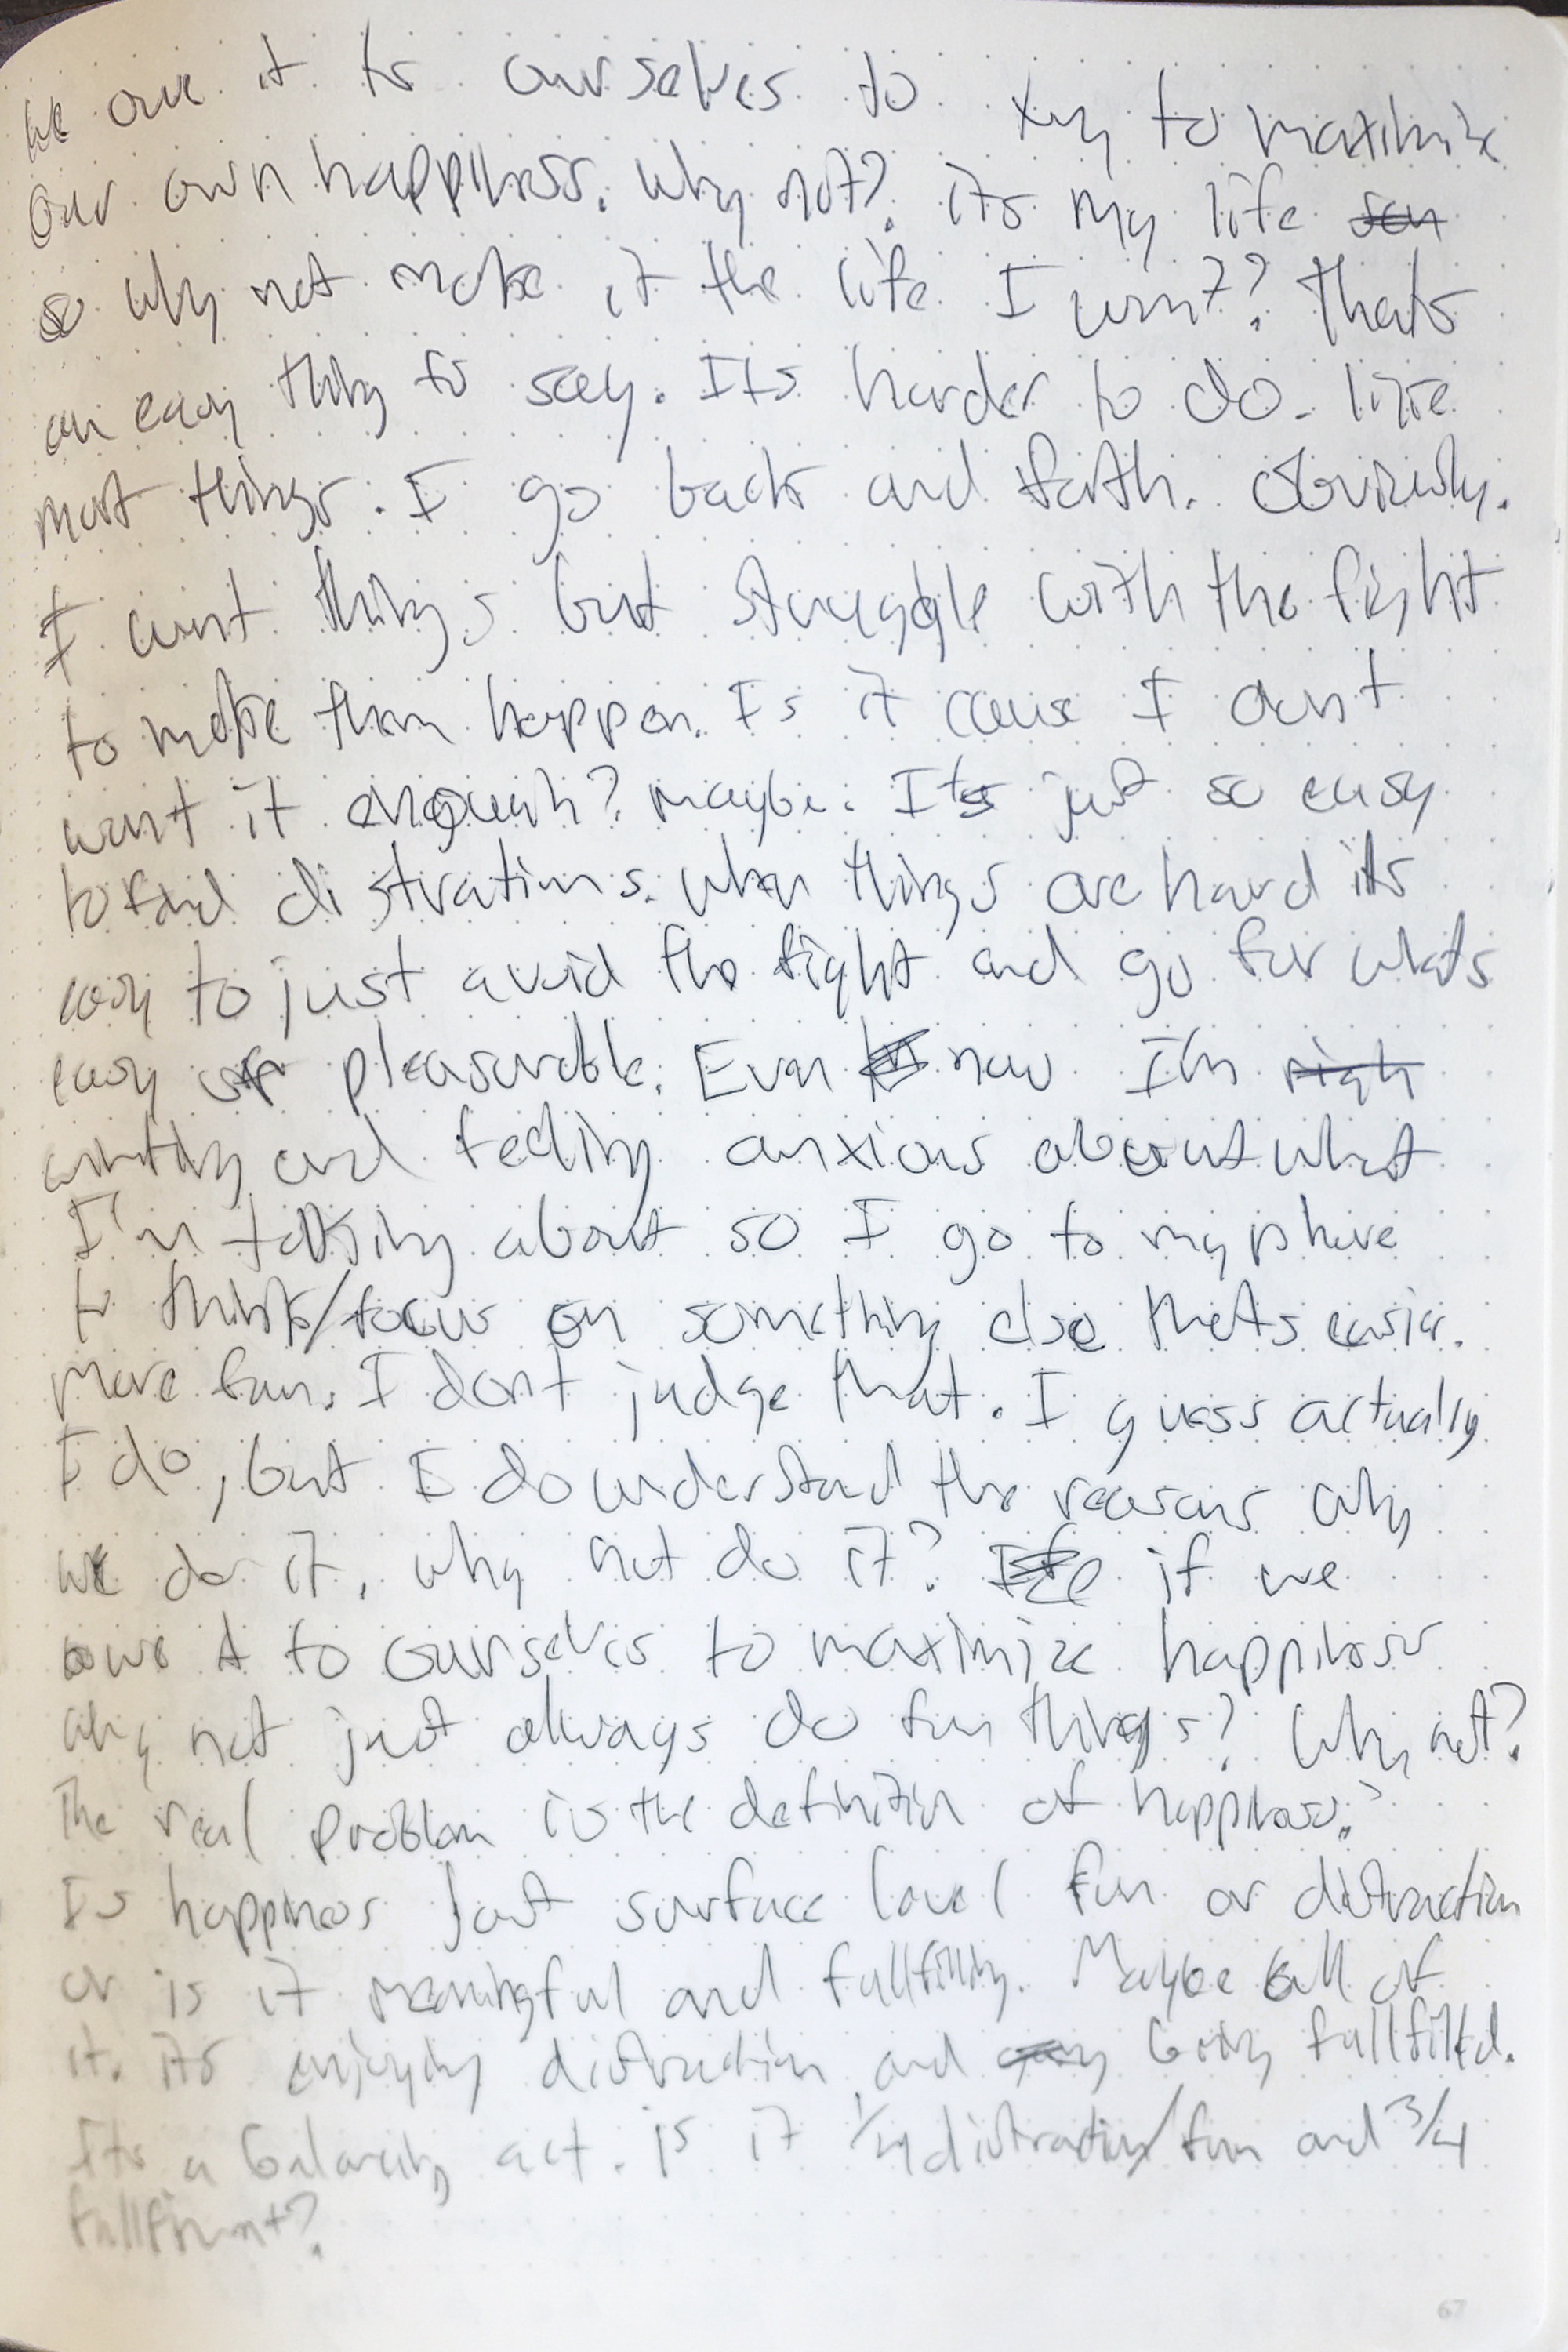 We owe it to ourselves to try to maximize
our own happiness. Why not? its my life
so why not make it the life I want? Thats
an easy thing to say. Its harder to do. like
most things. I go back and forth. Obviously.
I want things but struggle with the fight
to make them happen. Is it cause I don't
want it enough? maybe. Its just so easy
to find distrations. when things are hard its
easy to just avoid the fight and go for whats
easy or pleasurable. Even now I'm
writing and feeling anxious about what
I'm talking about so I go to my phone
to think/focus on something else thats easier.
More fun. I dont judge that. I guess actually
I do, but I do understand the reasons why
we do it. why not do it? if we
owe it to ourselves to maximize happiness
why not just always do fun things? Why not?
The real problem is the definition of happiness?
Is happiness just surface level fun or distraction
or is it meaningful and fullfilling. Maybe all of
it. its enjoying distraction and being fullfilled.
Its a balancing act. is it 1/4 distraction/fun and 3/4
fullfilment?
67